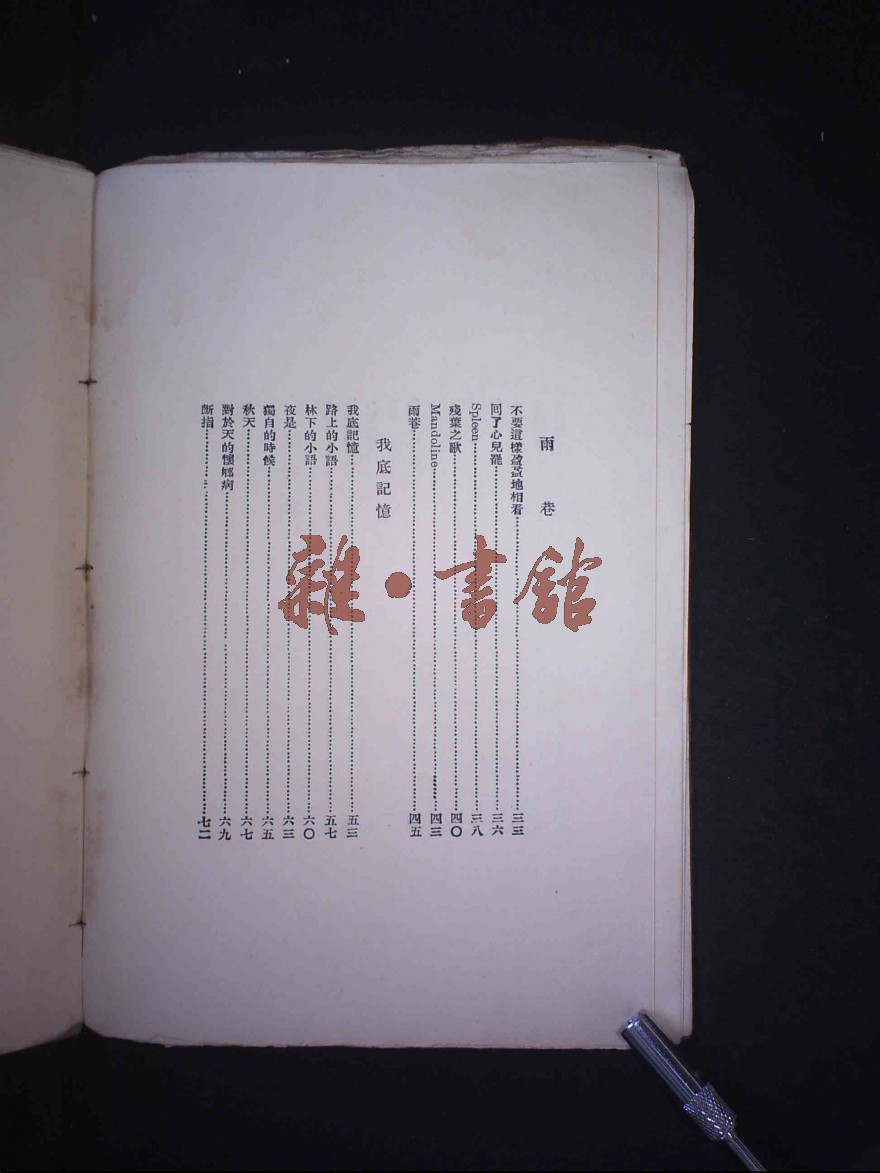 雨巷
不要這樣盈盈地相看……三三
回了心兒罷……三六
Spleen……三八
殘葉之歌……四〇
Mandoline……四三
雨巷……四五
我底記憶
我底記憶……五三
路上的小語……五七
林下的小語……六〇
夜是……六三
獨自的時候……六五
秋天……六七
對於天的懷鄉病……六九
斷指……七二
雜·書館